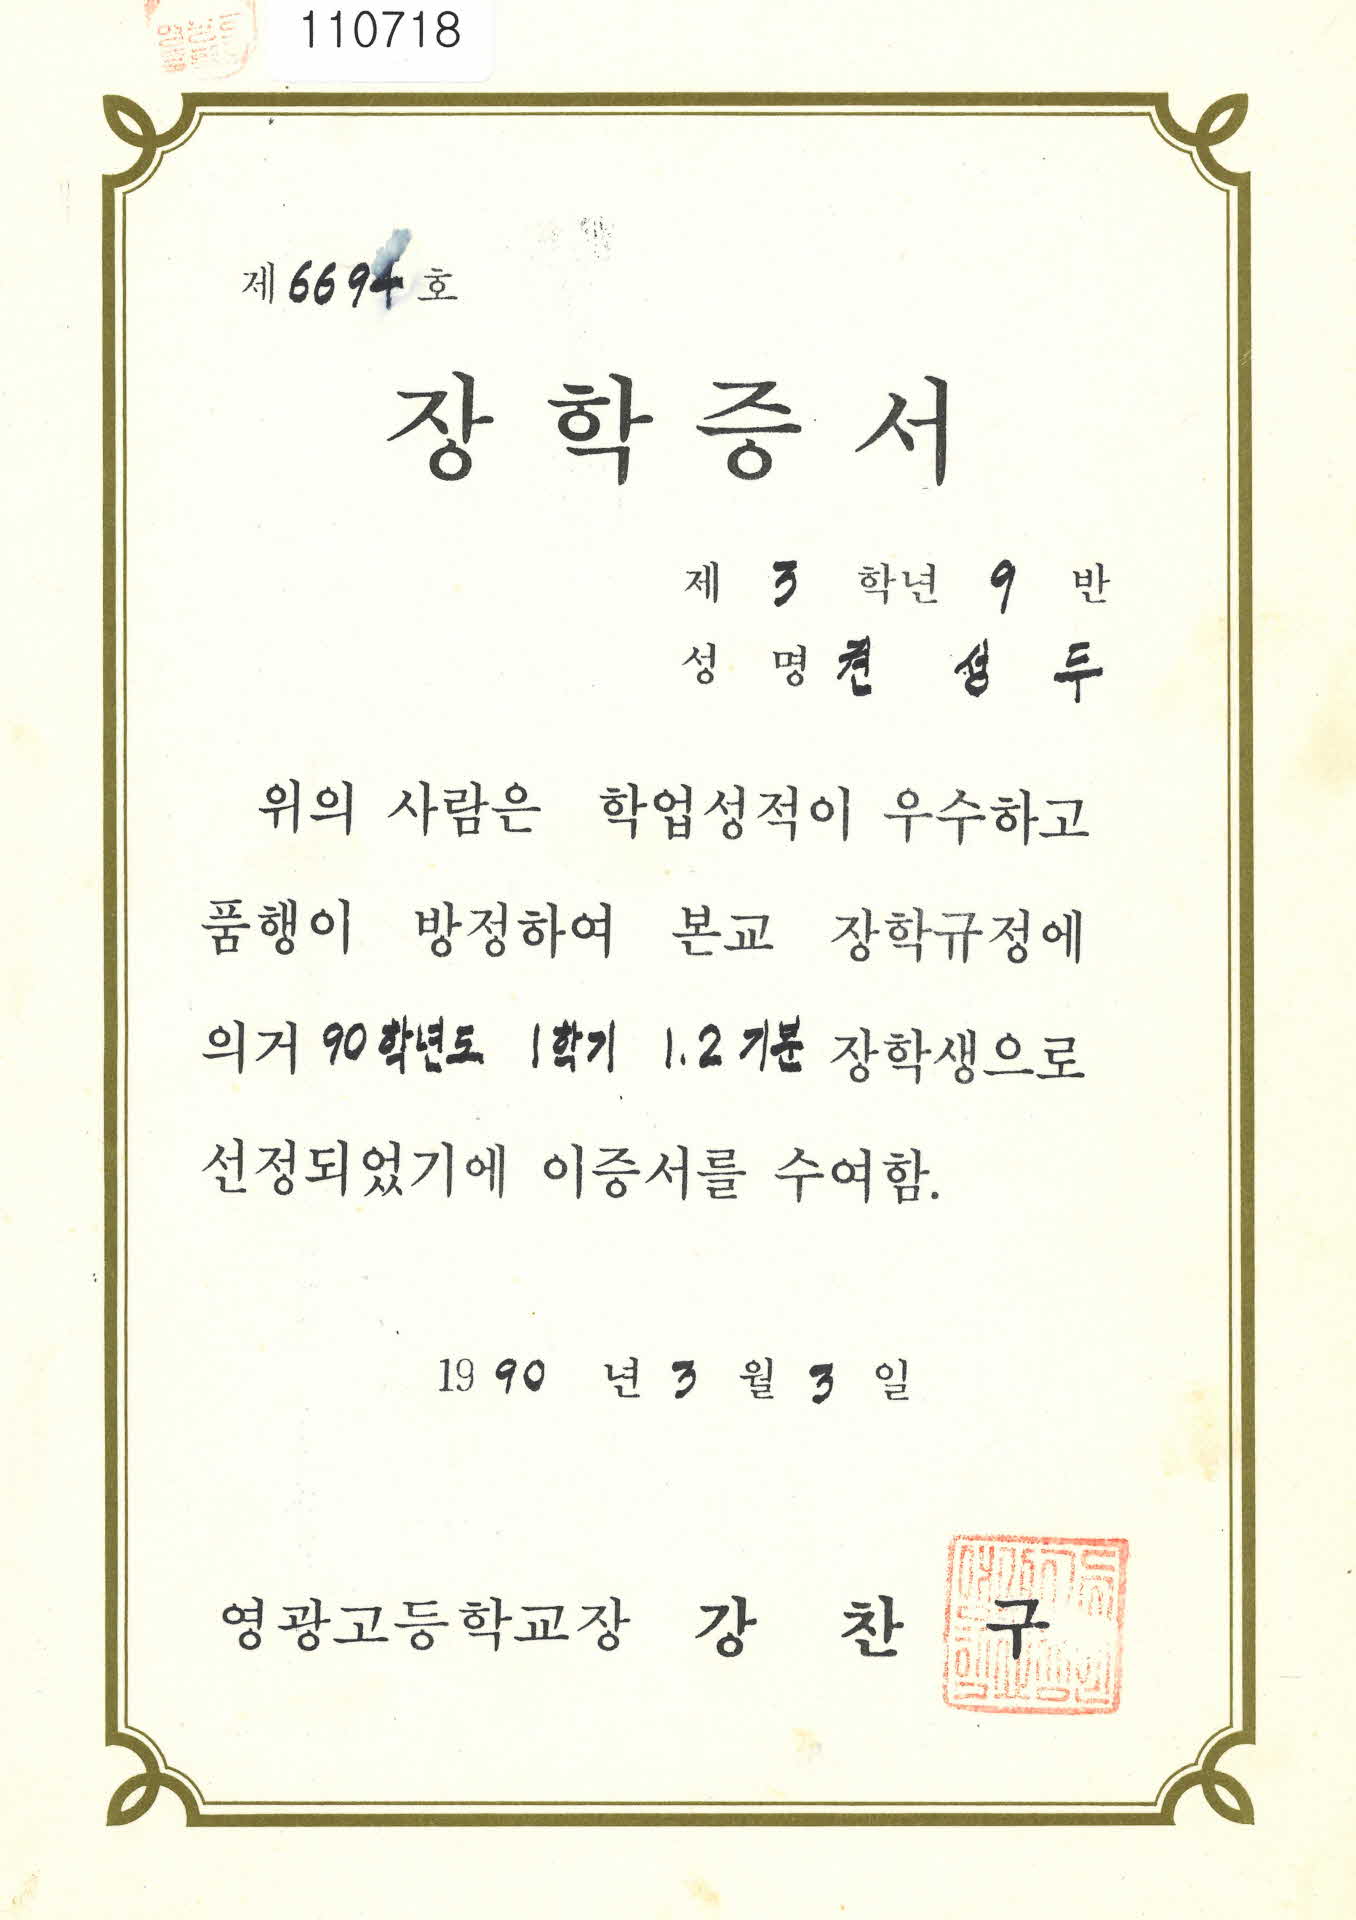 110718
제 6694 호
장학증서
제 3 학년 9 반
성 명 견 성 두
위의 사람은 학업성적이 우수하고
품행이 방정하여 본교 장학규정에
의거 90학년도 1학기 1.2기분 장학생으로
선정되었기에 이증서를 수여함.
1990 년 3 월 3 일
영광고등학교장 강 찬 구